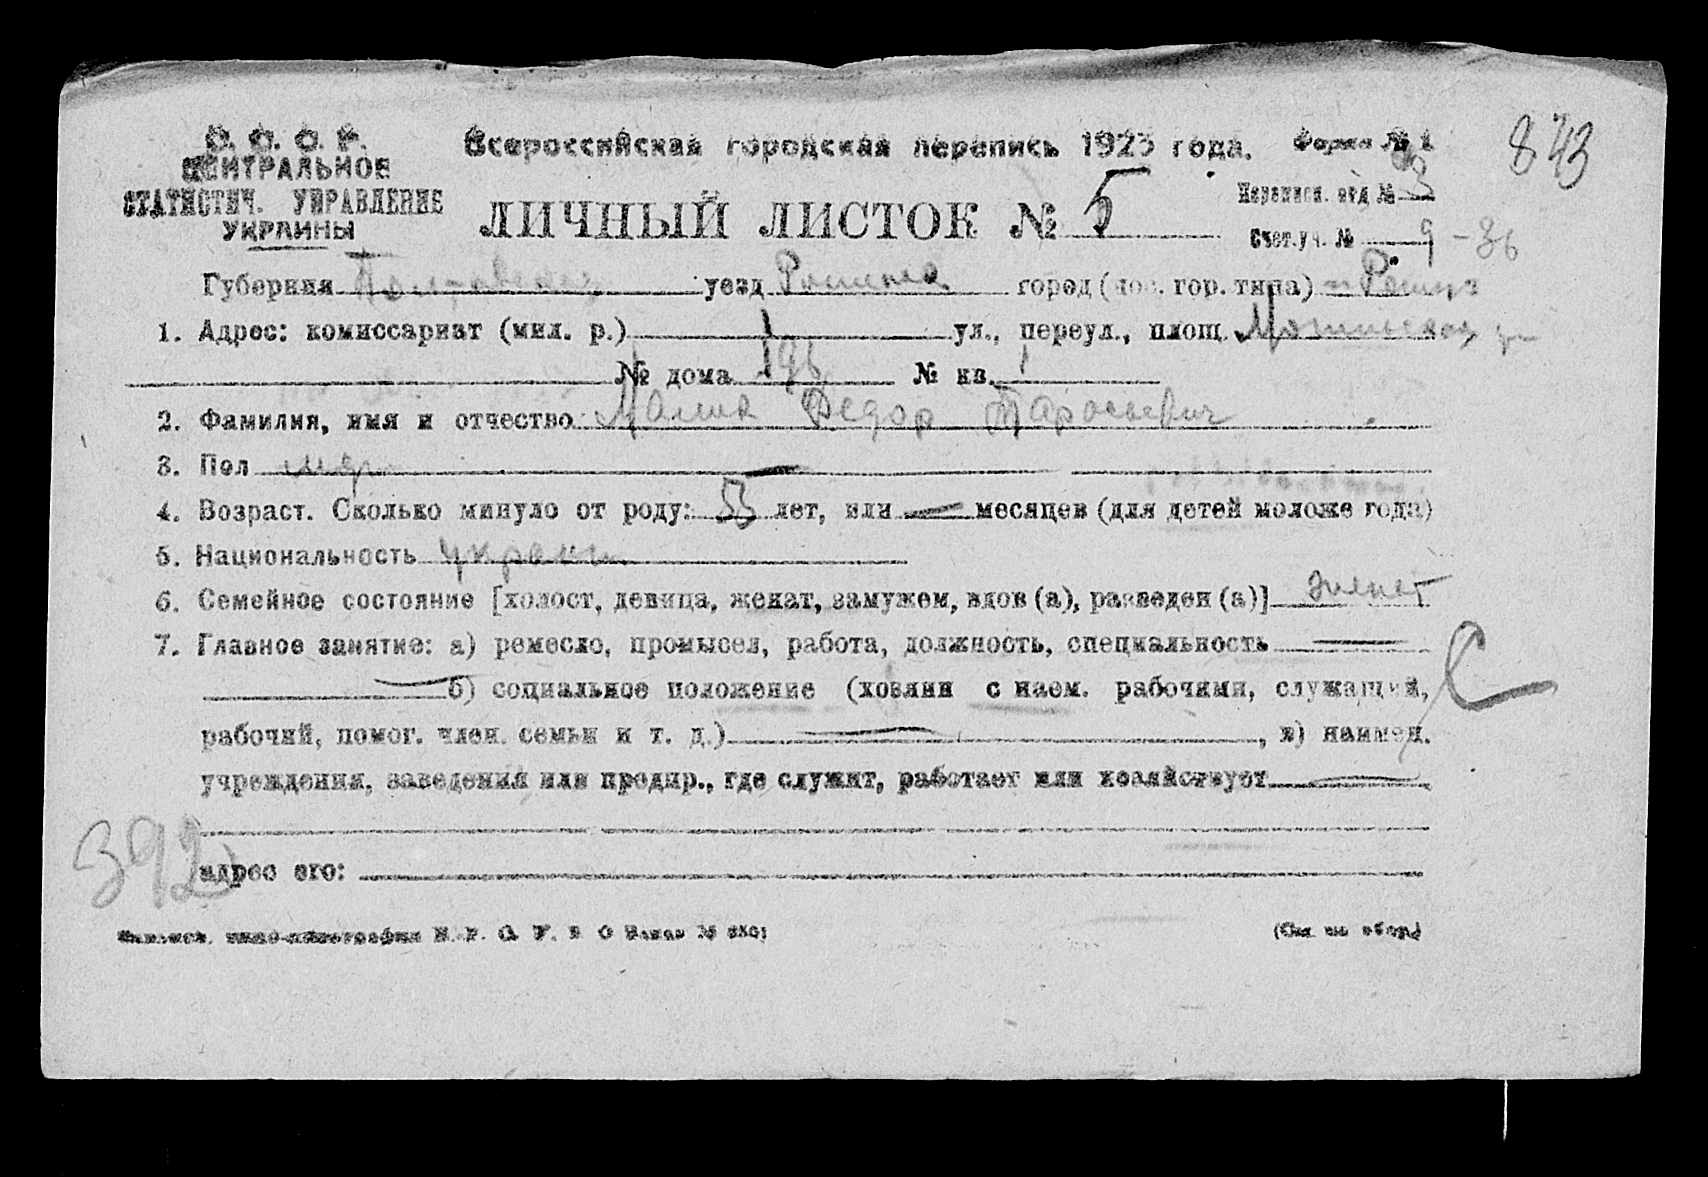 С. С. С. Р.
ЦЕНТРАЛЬНОЕ
СТАТИСТИЧ. УПРАВЛЕНИЕ
УКРАИНЫ
Всероссийская городская перепись 1923 года.
Форма № 1
843
ЛИЧНЫЙ ЛИСТОК № 5
Переписн. отд № 3
Счет.уч. № 9 - 36
Губерния Полтавская уезд город (пос. гор. типа)
1. Адрес: комиссариат (мил. р.) 1 ул., переул., площ.
№ дома № кв. 1
2. Фамилия, имя и отчество Федор Тарасьевич
3. Пол муж
4. Возраст. Сколько минуло от роду: лет, или — месяцев (для детей моложе года)
5. Национальность украин
6. Семейное состояние [холост, девица, женат, замужем, вдов (а), разведен (а)] женат
7. Главное занятие: а) ремесло, промысел, работа, должность, специальность —
— б) социальное положение (хозяин с наем. рабочими, служащий,
рабочий, помог. член. семьи и т. д.) — , в) наимен.
учреждения, заведения или предпр., где служит, работает или хозяйствует —
392
адрес его:
(См. на обор.)